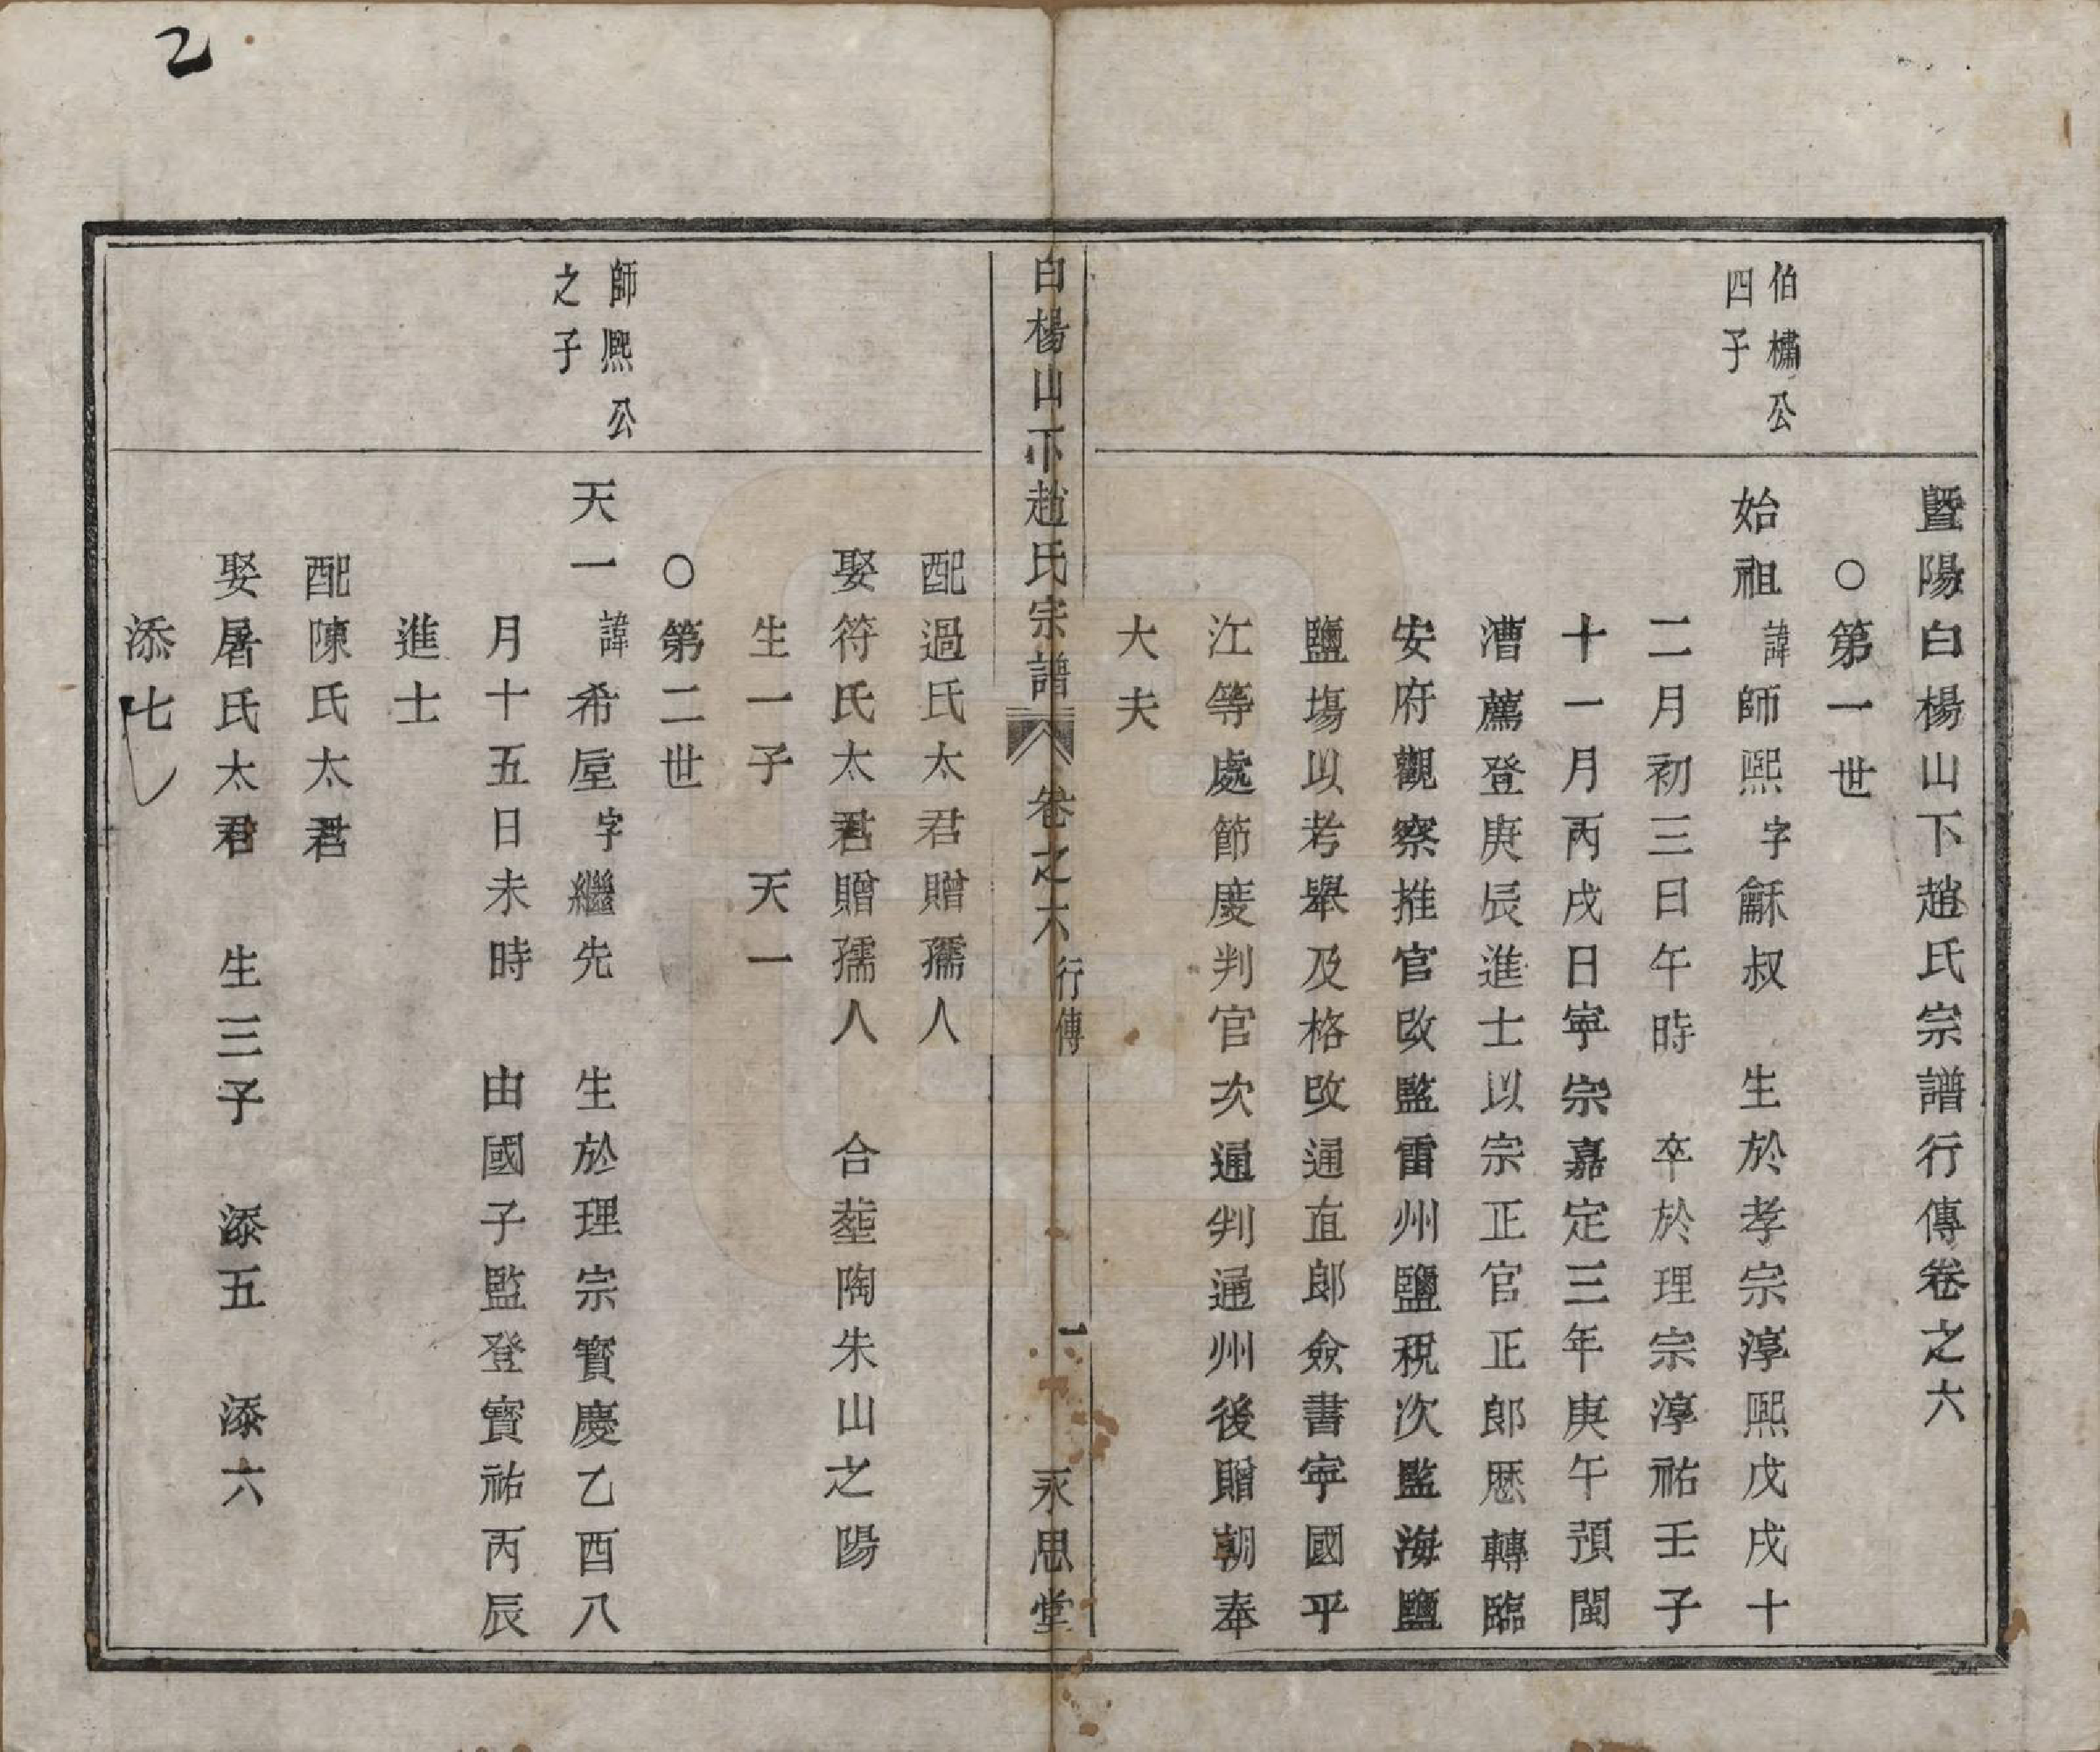 暨陽白楊山下趙氏宗譜行傳卷之六
○第一世
伯橚公
四子
始祖諱師熙字龢叔　生於孝宗淳熙戊戌十
二月初三日午時　卒於理宗淳祐壬子
十一月丙戌日寕宗嘉定三年庚午預閩
漕薦登庚辰進士以宗正官正郎歴轉臨
安府觀察推官改監雷州鹽税次監海鹽
鹽塲以考舉及格改通直郎僉書寕國平
江等處節度判官次通判通州後贈朝奉
大夫
白楊山下趙氏宗譜
卷之六
行傳
一
永思堂
配過氏太君贈孺人
娶符氏太君贈孺人　合塟陶朱山之陽
生一子　天一
○第二世
師熈公
之子
天一諱希垕字繼先　生於理宗寳慶乙酉八
月十五日未時　由國子監登寳祐丙辰
進士
配陳氏太君
娶屠氏太君　生三子　添五　添六
添七
乙